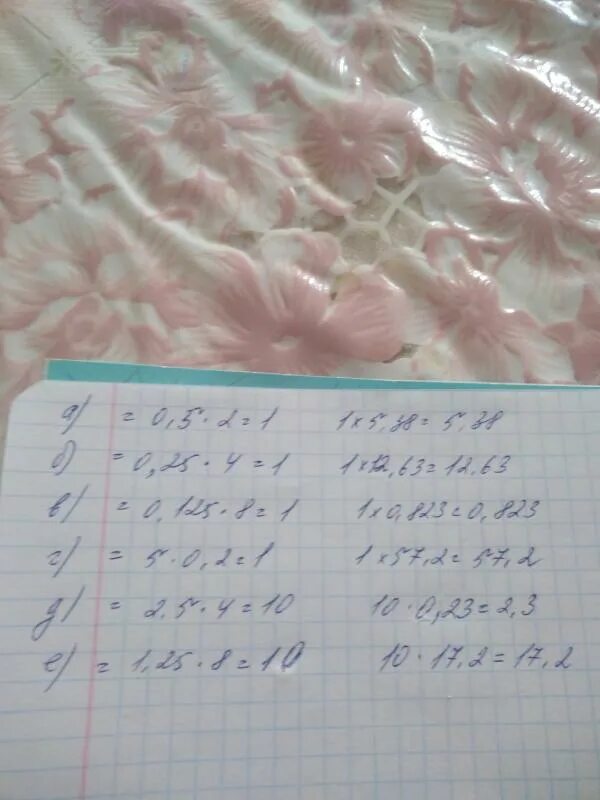 а) = 0,5 · 2 = 1 1 × 5,38 = 5,38
б) = 0,25 · 4 = 1 1 × 12,63 = 12,63
в) = 0,125 · 8 = 1 1 × 0,823 = 0,823
г) = 5 · 0,2 = 1 1 × 57,2 = 57,2
д) = 2.5 · 4 = 10 10 · 0,23 = 2,3
е) = 1,25 · 8 = 10 10 · 17,2 = 17,2